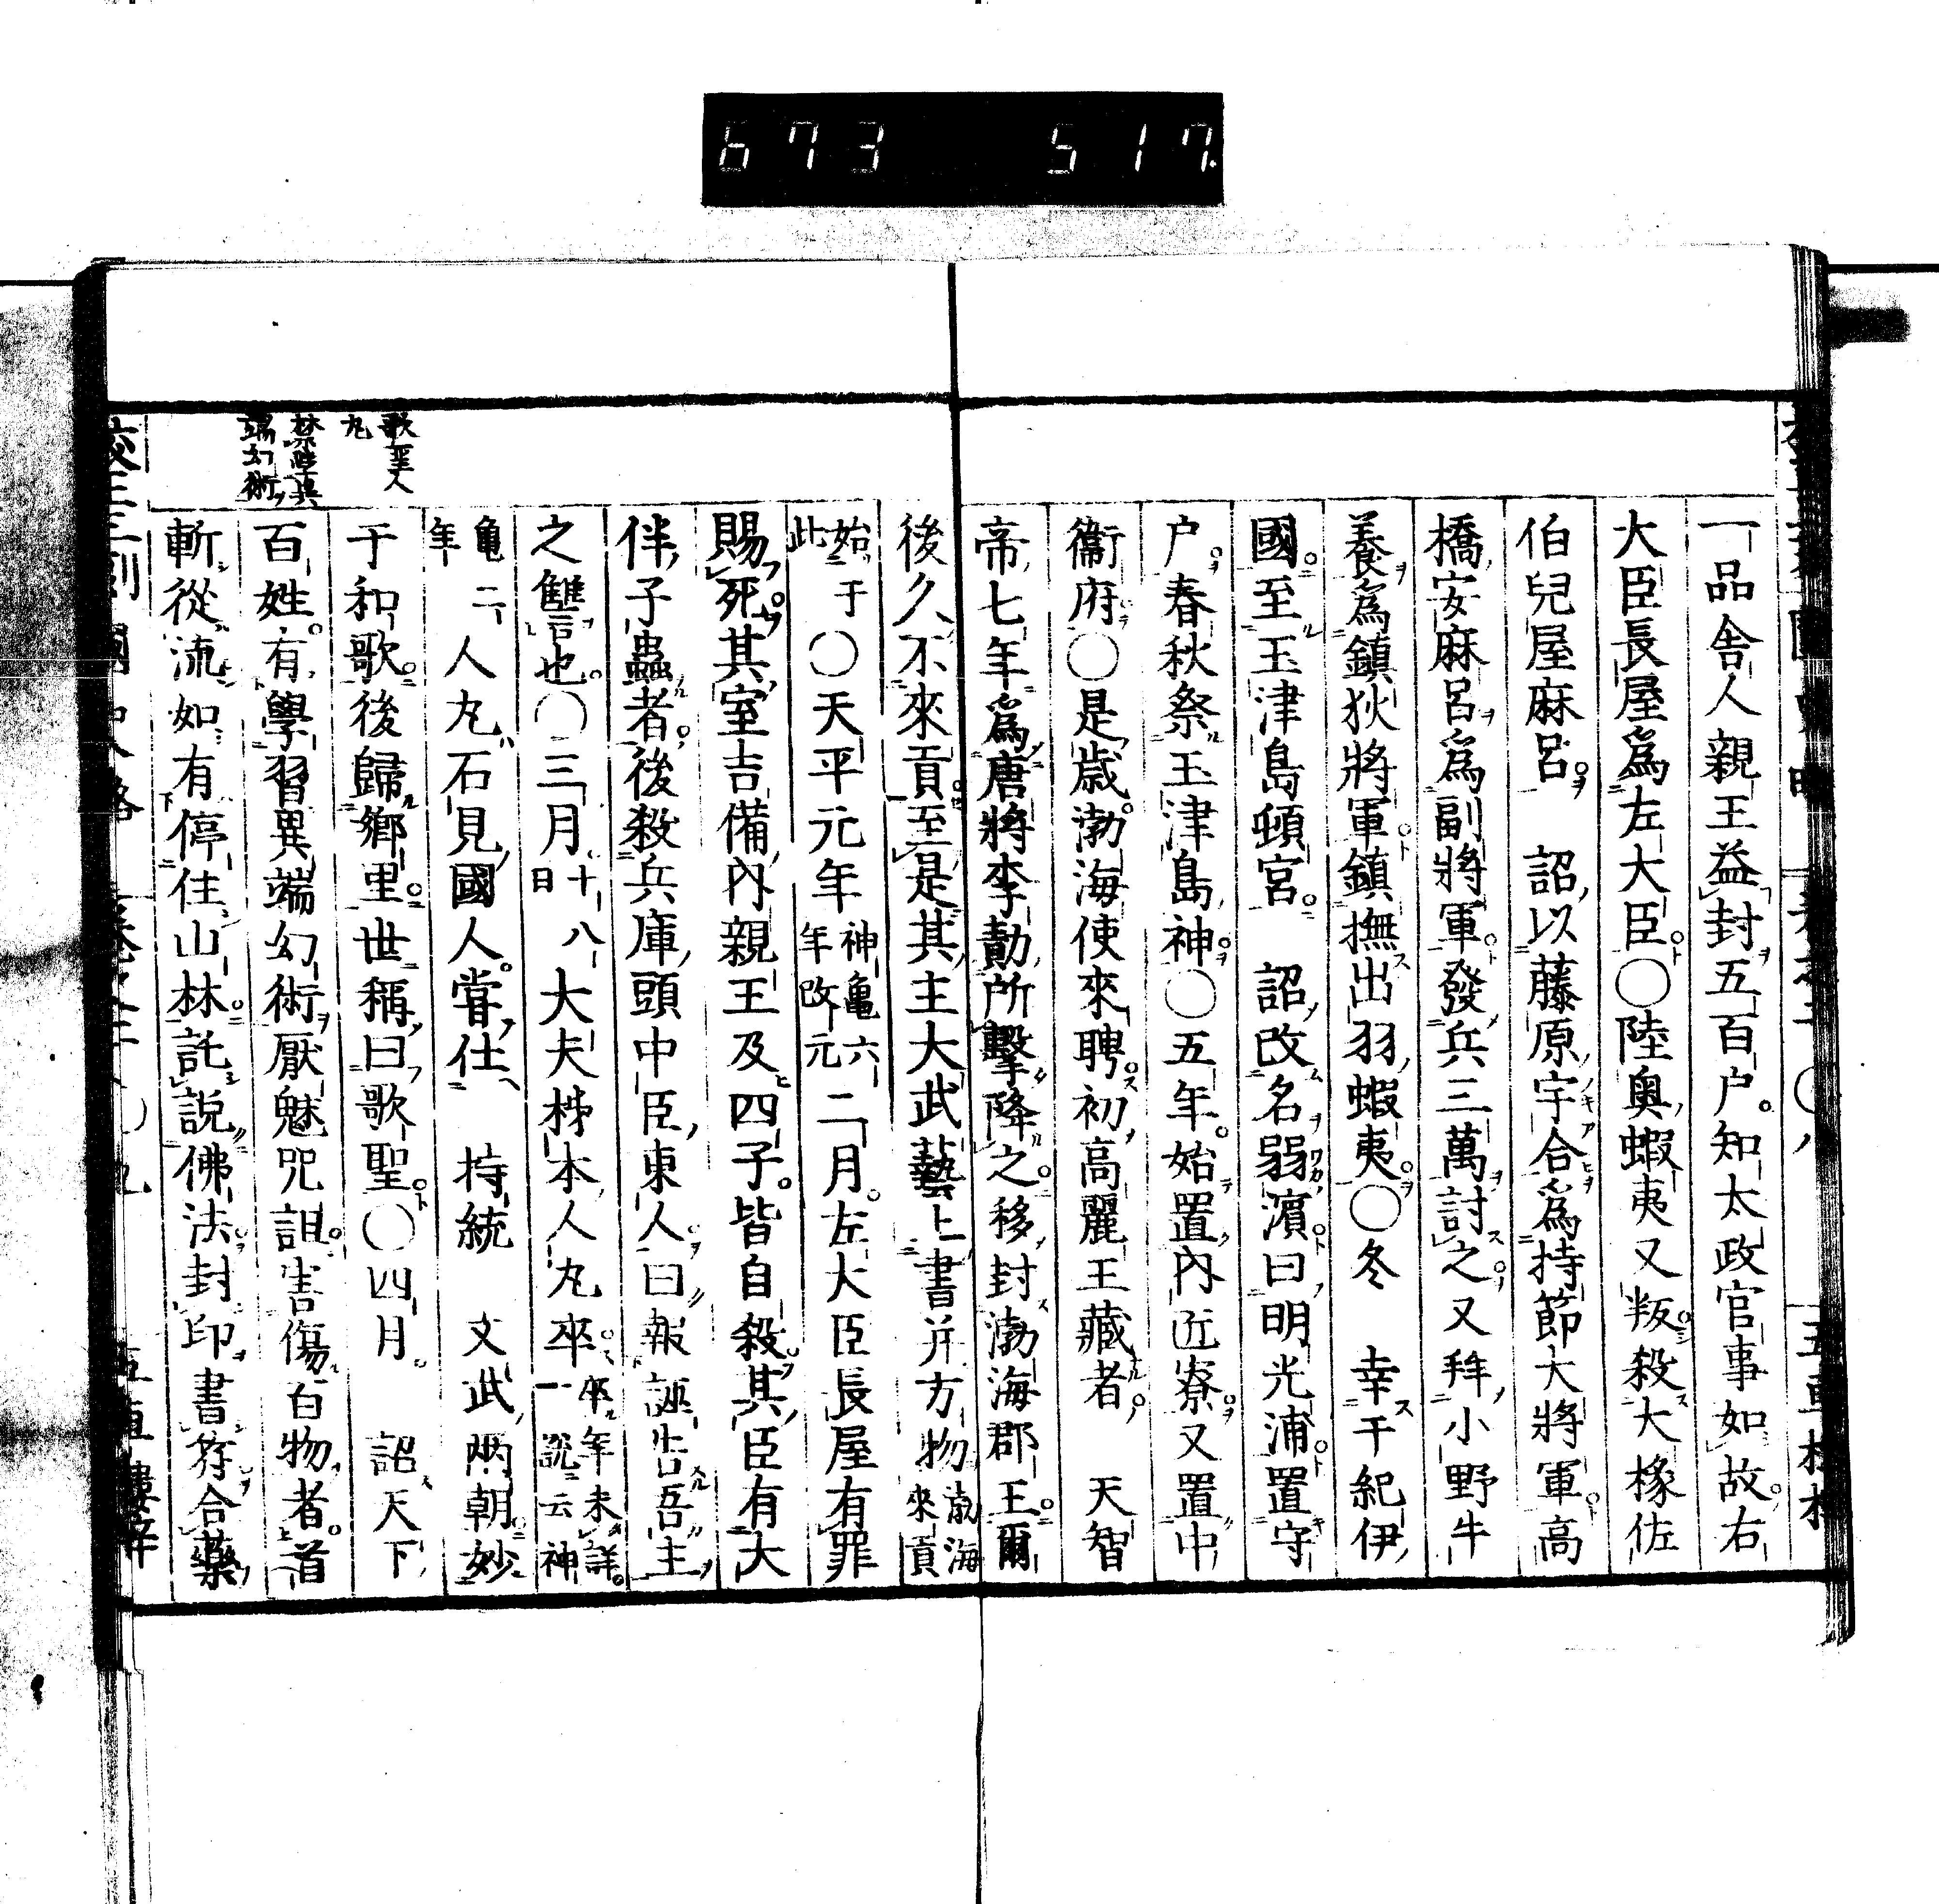 673 517
一品舎人親王益封五百戸知太政官事如故右
大臣長屋爲左大臣○陸奥蝦夷又叛殺大椽佐
伯兒屋麻呂 詔以藤原宇合爲持節大將軍高
橋安麻呂爲副將軍發兵三萬討之又拜小野牛
養爲鎮狄將軍鎮撫出羽蝦夷○冬 幸于紀伊
國至玉津島頓宮 詔改名弱濱曰明光浦置守
戸春秋祭玉津島神○五年始置内匠寮又置中
衞府○是歳渤海使來聘初高麗王藏者 天智
帝七年爲唐將李勣所擊降之移封渤海郡王爾
後久不來貢至是其主大武藝上書并方物渤海來貢
始于此○天平元年神亀六年改元二月左大臣長屋有罪
賜死其室吉備内親王及四子皆自殺其臣有大
伴子蟲者後殺兵庫頭中臣東人曰報誣告吾主
之讐也○三月十八日大夫柹本人丸卒卒年未詳一説云神
亀二年人丸石見國人嘗仕 持統 文武兩朝妙
于和歌後歸郷里世稱曰歌聖○四月 詔天下
百姓有學習異端幻術厭魅咒詛害傷百物者首
斬從流如有停住山林託説佛法封印書符合藥
歌聖人丸
禁學異端幻術